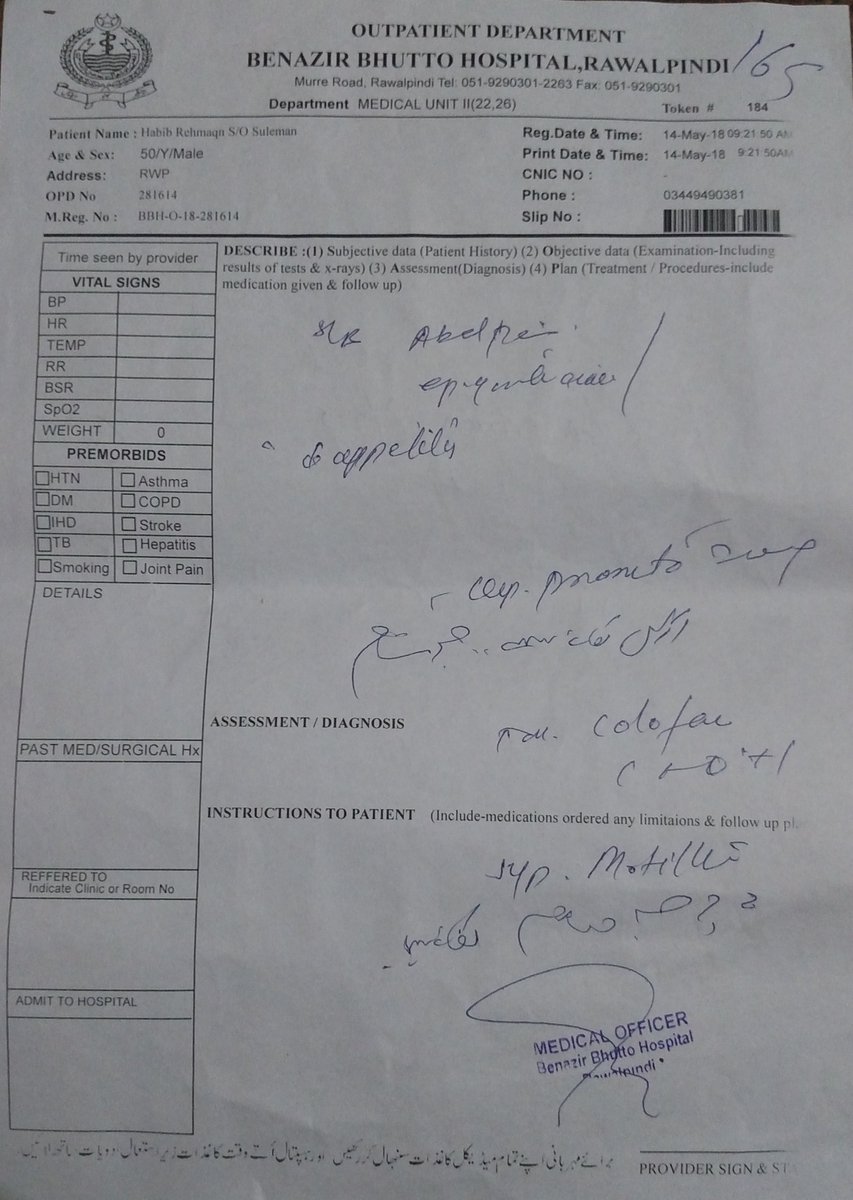 OUTPATIENT DEPARTMENT
BENAZIR BHUTTO HOSPITAL,RAWALPINDI
165
Murre Road, Rawalpindi Tel: 051-9290301-2263 Fax: 051-9290301
Department MEDICAL UNIT II(22,26)
Token # 184
Patient Name : Habib Rehmaqn S/O Suleman
Age & Sex: 50/Y/Male
Address: RWP
OPD No 281614
M.Reg. No : BBH-O-18-281614
Reg.Date & Time: 14-May-18 09:21 50 AM
Print Date & Time: 14-May-18 9:21 50AM
CNIC NO : -
Phone : 03449490381
Slip No :
Time seen by provider
VITAL SIGNS
BP
HR
TEMP
RR
BSR
SpO2
WEIGHT 0
PREMORBIDS
HTN Asthma
DM COPD
IHD Stroke
TB Hepatitis
Smoking Joint Pain
DETAILS
PAST MED/SURGICAL Hx
REFFERED TO
Indicate Clinic or Room No
ADMIT TO HOSPITAL
DESCRIBE :(1) Subjective data (Patient History) (2) Objective data (Examination-Including
results of tests & x-rays) (3) Assessment(Diagnosis) (4) Plan (Treatment / Procedures-include
medication given & follow up)
appetite
cap.
ASSESSMENT / DIAGNOSIS
Colofac
1+0+1
INSTRUCTIONS TO PATIENT (Include-medications ordered any limitaions & follow up pl
syp. Motilium
MEDICAL OFFICER
Benazir Bhutto Hospital
Rawalpindi
برائے مہربانی اپنے تمام میڈیکل کاغذات سنبھال کر رکھیں اور ہسپتال آتے وقت کاغذات زیر استعمال ادویات ساتھ لائیں
PROVIDER SIGN & ST